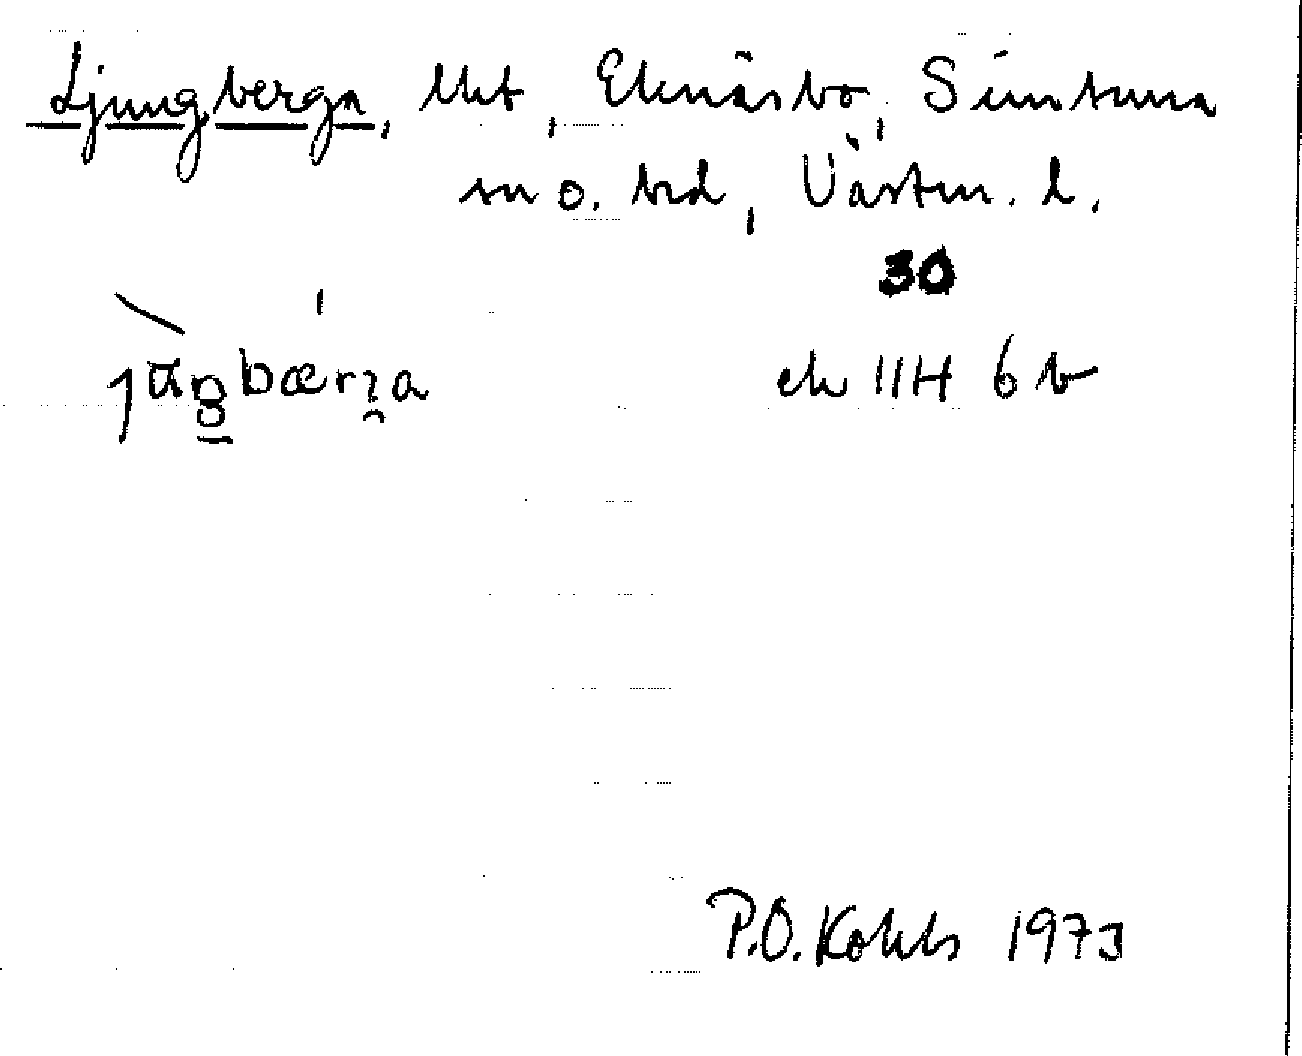 Ljungberga, lht, Eknäsbo, Simtuna
sn o. hd, Västm. l.
30
ek 11H 6 b
P.O. Kohls 1973